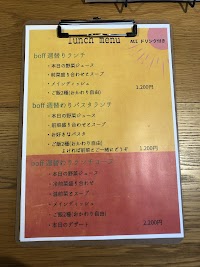 lunch menu
ALL ドリンク付き
boff 週替りランチ
・本日の野菜ジュース
・前菜盛り合わせとスープ
・メインディッシュ
・ご飯2種(おかわり自由)
1,200円
boff 週替わりパスタランチ
・本日の野菜ジュース
・前菜盛り合わせとスープ
・お好きなパスタ
・ご飯2種(おかわり自由)
よければ前菜とご一緒にどうぞ
1,200円
boff 週替わり
・本日の野菜ジュース
・メインディッシュ
・ご飯2種(おかわり自由)
・本日のデザート
2,200円